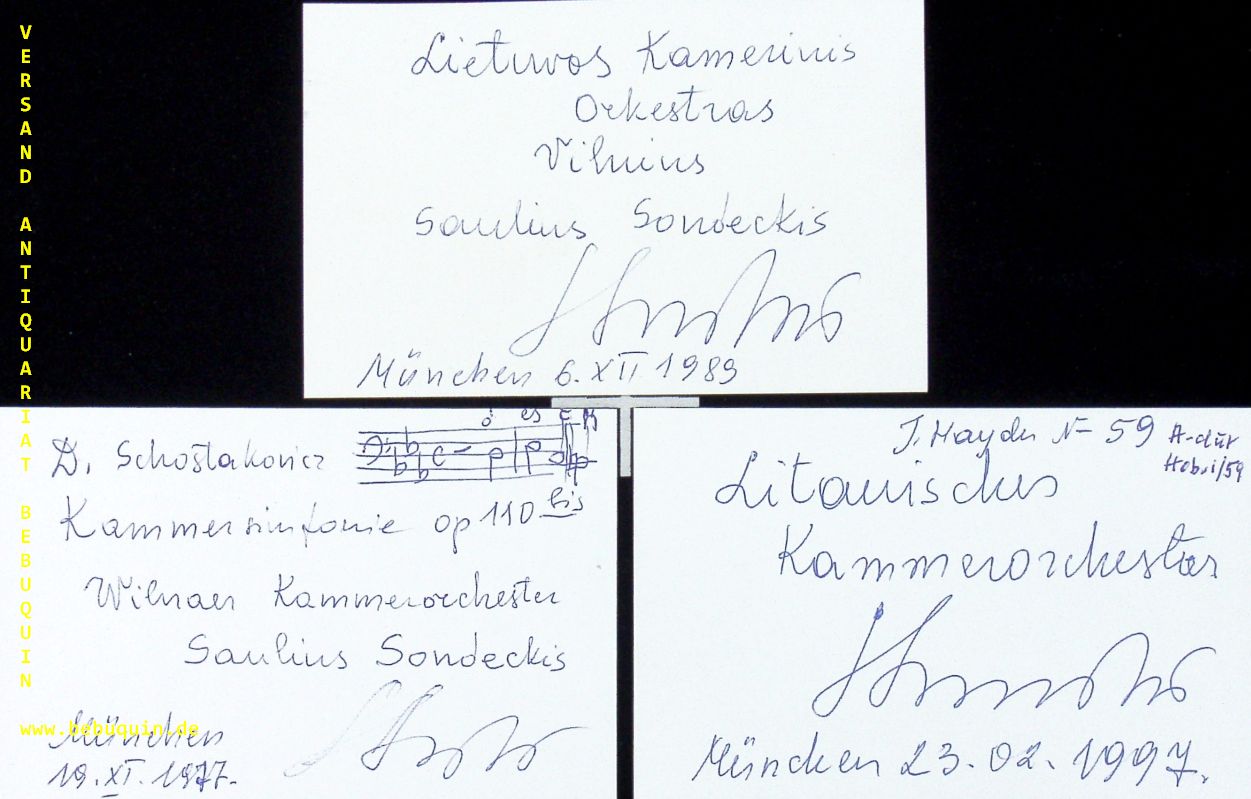 VERSAND ANTIQUARIAT BEBUQUIN
www.bebuquin.de
Lietuvos Kamerinis
Orkestras
Vilnius
Saulius Sondeckis
München 6. XII 1989
D. Schostakovicz
Kammersinfonie op 110 bis
Wilnaer Kammerorchester
Saulius Sondeckis
München
19. XI. 1977.
J. Haydn № 59 A-dur
Hob. i/59
Litauisches
Kammerorchester
München 23. 02. 1997.